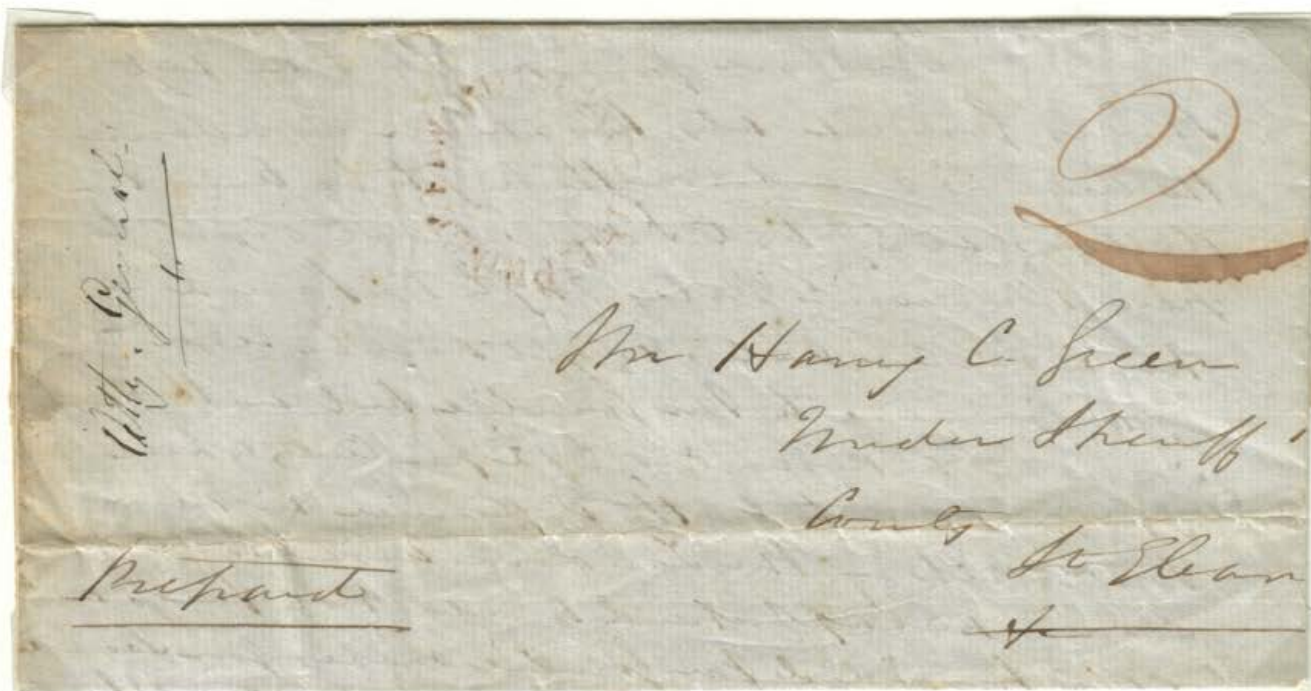 Atty. General
2
Mr Harry C. Green
Under Sheriff
County
St Elean
Prepaid